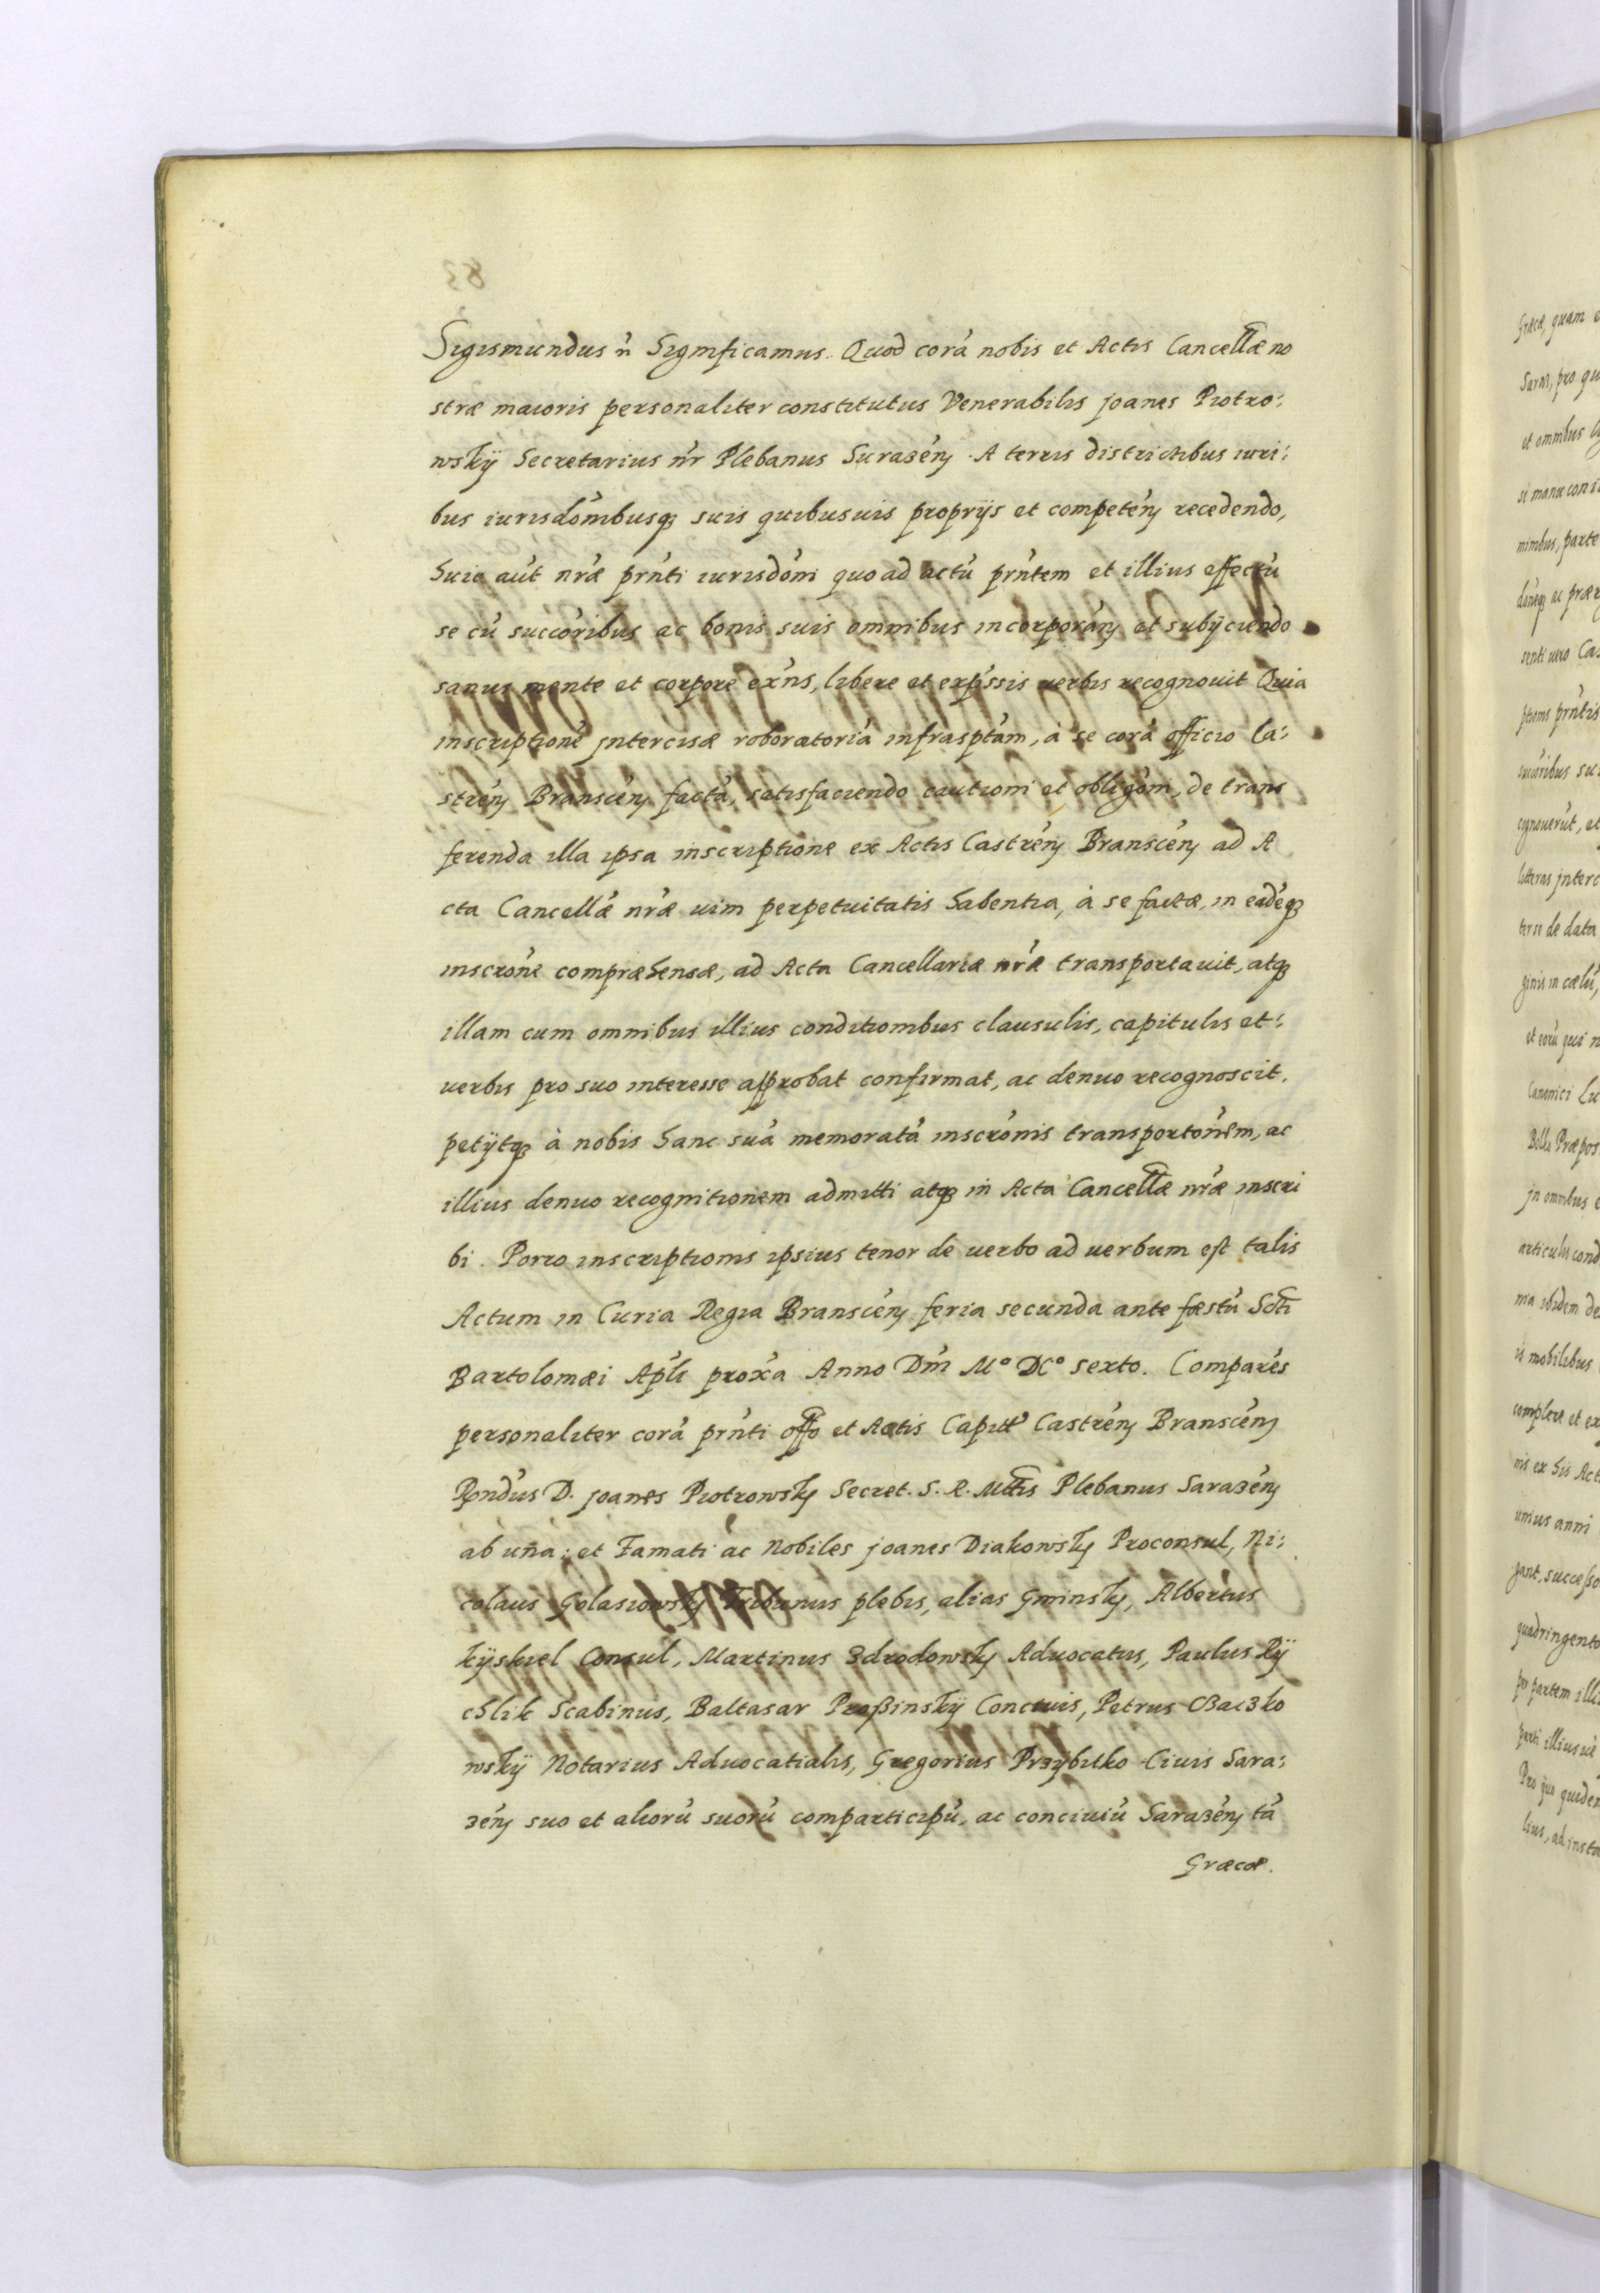 Sigismundus ñ Significamus. Quod corá nobis et Actis Cancellæ no
stræ maioris personaliter constitutus Venerabilis Joanes Piotro:
wskÿ Secretarius nŕ Plebanus Surazéń. A terris districtibus iuri:
bus iurisdómibusq suis quibusuis proprijs et competéń recedendo,
Huic aút nŕæ prńti iurisdóni quo ad actú prńtem et illius effectú
se cú succóribus ac bonis suis omnibus incorporáń et subÿciendo
sanus mente et corpore exńs, libere et expŕssis verbis recognouit Quia
inscriptioné intercisæ roboratoriá infrasptám, à se corá officio Ca:
stréń Branscéń factá, satisfaciendo cautioni et obligóni, de trans
ferenda illa ipsa inscriptione ex Actis Castréń Branscéń ad A
cta Cancellǽ nŕæ uim perpetuitatis habentia, à se factæ, in eadéq
inscróne compræhensæ, ad Acta Cancellariæ nŕæ transportauit, atq
illam cum omnibus illius conditionibus clausulis, capitulis et:
verbis pro suo interesse approbat confirmat, ac denuo recognoscit.
petÿtq à nobis hanc suá memoratá inscrónis transportónem, ac
illius denuo recognitionem admitti atq in Acta Cancellæ nŕæ inscri
bi. Porro inscriptionis ipsius tenor de uerbo ad uerbum est talis
Actum in Curia Regia Branscéń feria secunda ante fæstú Scti
Bartolomæi Apĺi próxa Anno Dńi M° DC° sexto. Comparés
personaliter corá prńti offo et Actis Capitt' Castréń Branscéń
Rńdus D. Joanes Piotrowskÿ Secret. S. R. Mttis Plebanus Sarazéń
ab una: et Famati ac Nobiles Joanes Diakowskÿ Proconsul, Ni:
colaus Golasiowskÿ Tribunus plebis, alias Gminskÿ, Albertus
Kÿskiel Consul, Martinus Zdrodowskÿ Aduocatus, Paulus Rÿ
chlik Scabinus, Baltasar Proßinskÿ Conciuis, Petrus CBaczko
wskÿ Notarius Aduocatialis, Gregorius Przÿbitko Ciuis Sara:
zéń suo et aliorú suorú comparticipú, ac conciuiú Sarazéń tá
Græcæ.